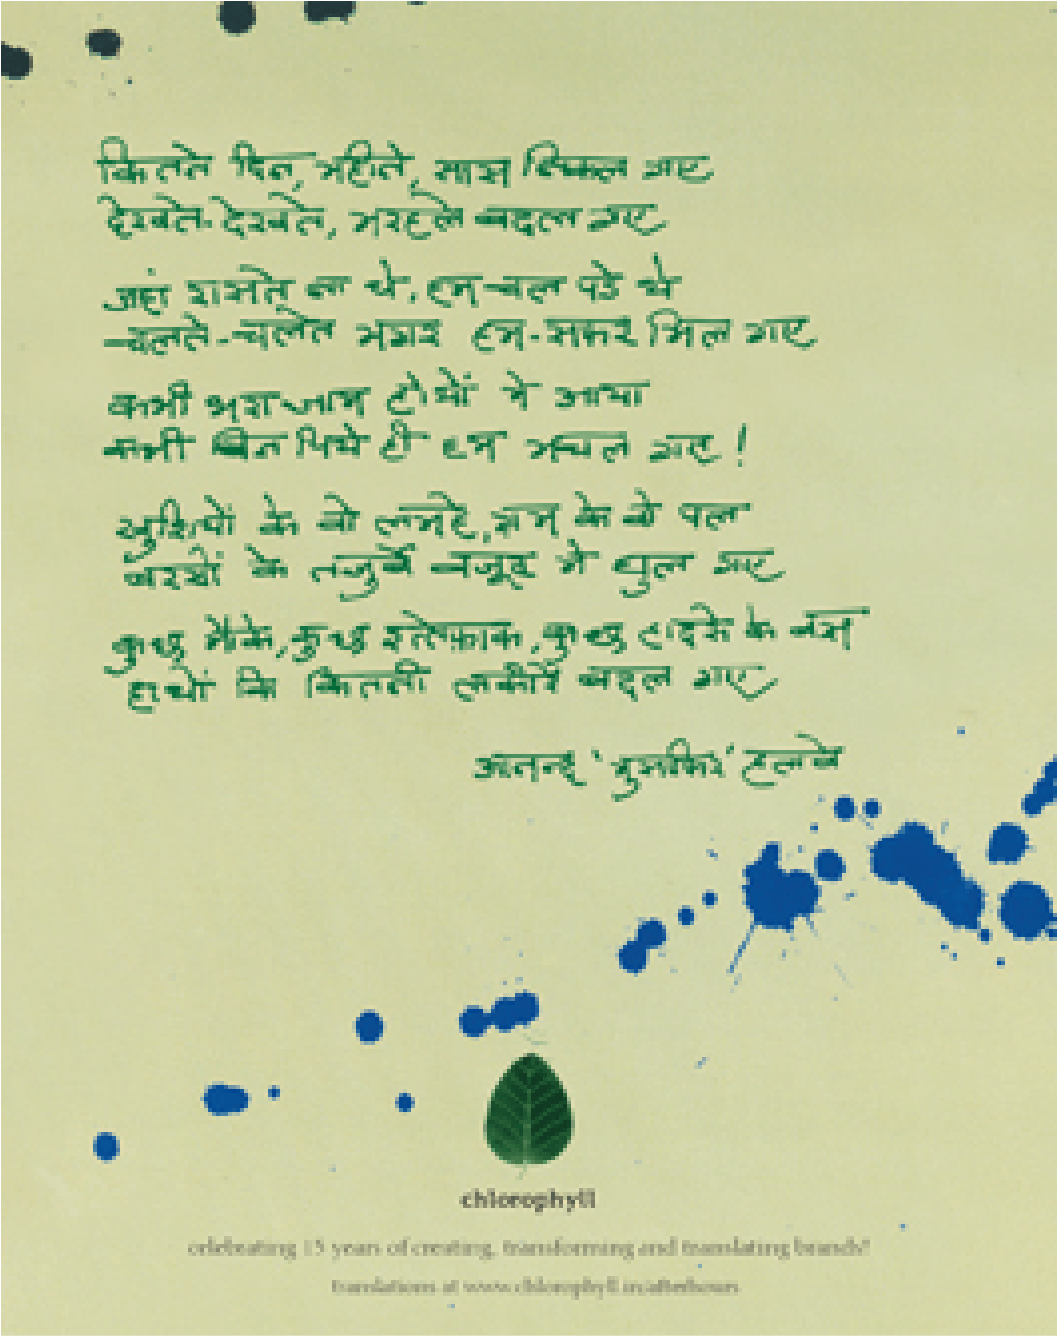 कितने दिन, महीने, साल निकल गए
देखते-देखते, मरहले बदल गए
जहां रास्ते ना थे, हम चल पड़े थे
चलते-चलते मगर हम-सफ़र मिल गए
कभी भरा जाम हाथों में आया
कभी बिन पिये ही हम मचल गए!
खुशियों के वो लम्हे, ग़म के वो पल
बरसों के तजुर्बे वजूद में घुल गए
कुछ मौके, कुछ इत्तेफ़ाक, कुछ हादसे के बस
हाथों कि कितनी लकीरें बदल गए
आनन्द 'मुसाफिर' हलवे
chlorophyll
celebrating 15 years of creating, transforming and translating brands!
translations at www.chlorophyll.in/afterhours